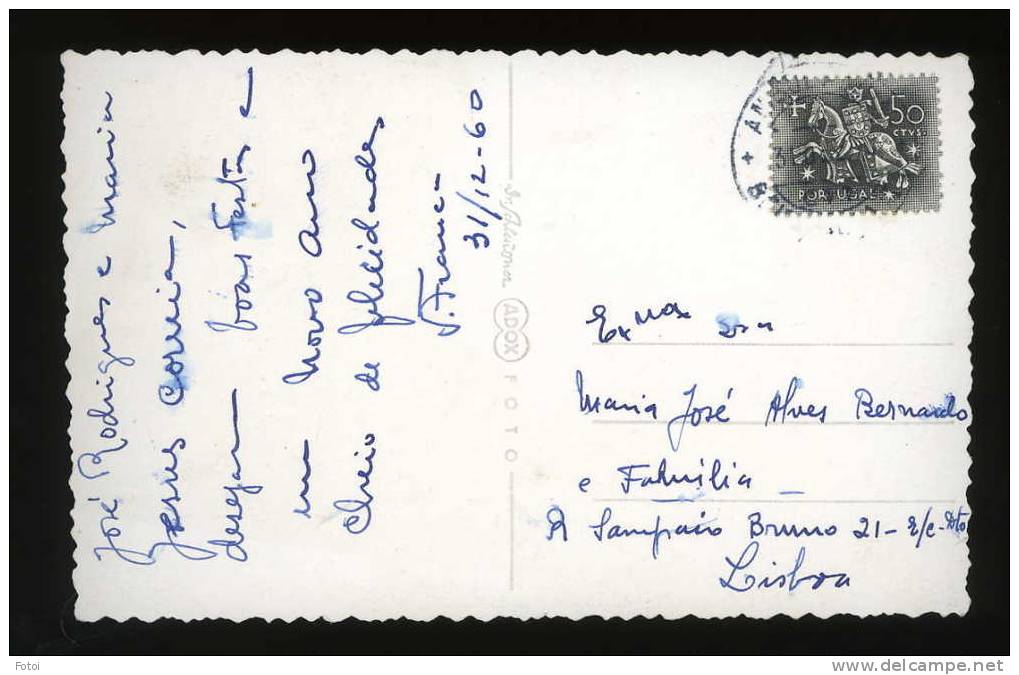 José Rodrigues e Maria
Jesus Correia,
desejam boas festas e
um Novo Ano
cheio de felicidades
V. Franca
31/12-60
ADOX
FOTO
50
CTVS.
PORTUGAL
Exma Sra
Maria José Alves Bernardo
e Família
R Sampaio Bruno 21-R/c-Dto
Lisboa
Fotoi
www.delcampe.net